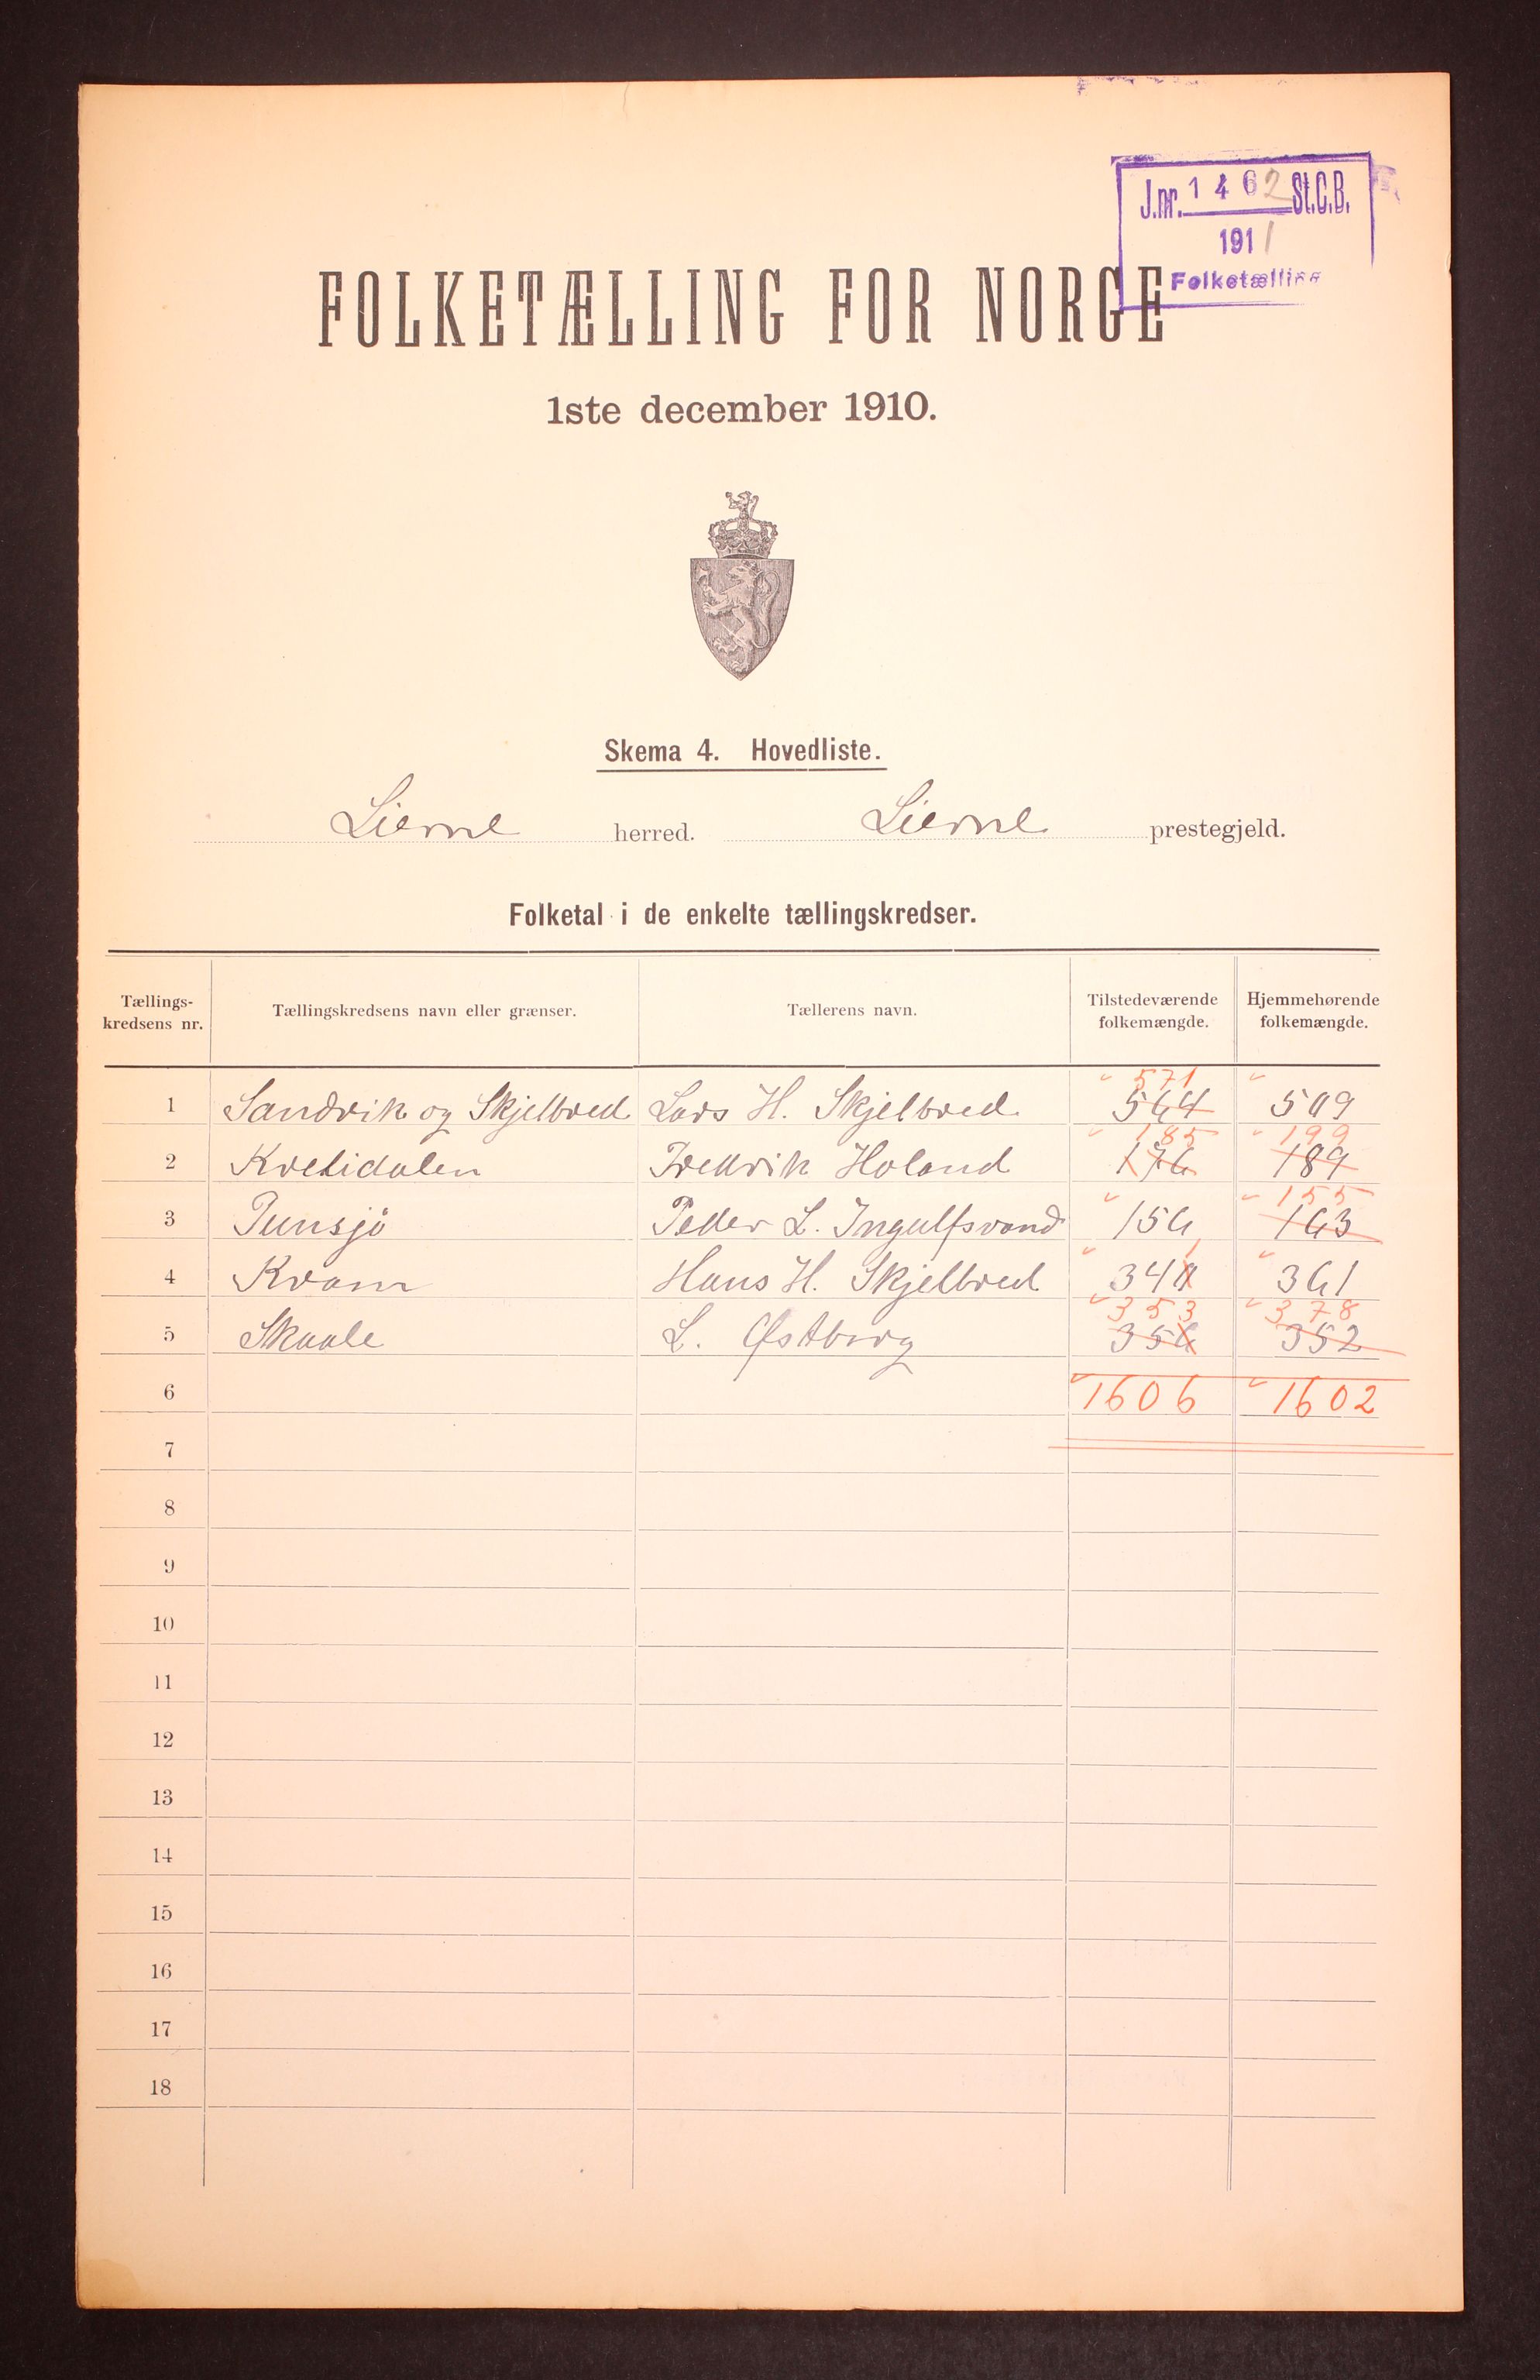 J.nr. 1462 St.C.B.
1911
Folketælling
FOLKETÆLLING FOR NORGE
1ste december 1910.
Skema 4. Hovedliste.
Lierne herred. Lierne prestegjeld.
Folketal i de enkelte tællingskredser.
Tællings-
kredsens nr.
Tællingskredsens navn eller grænser.
Tællerens navn.
Tilstedeværende
folkemængde.
Hjemmehørende
folkemængde.
571
1 Sandvik og Skjelbred Lars H. Skjelbred 564 509
185 199
2 Kvelidalen Fredrik Holand 176 189
155
3 Tunsjö Peder L. Ingulfsvand 156 163
1
4 Kvam Hans H. Skjelbred 340 361
353 378
5 Skaale L. Østborg 356 352
6 1606 1602
7
8
9
10
11
12
13
14
15
16
17
18